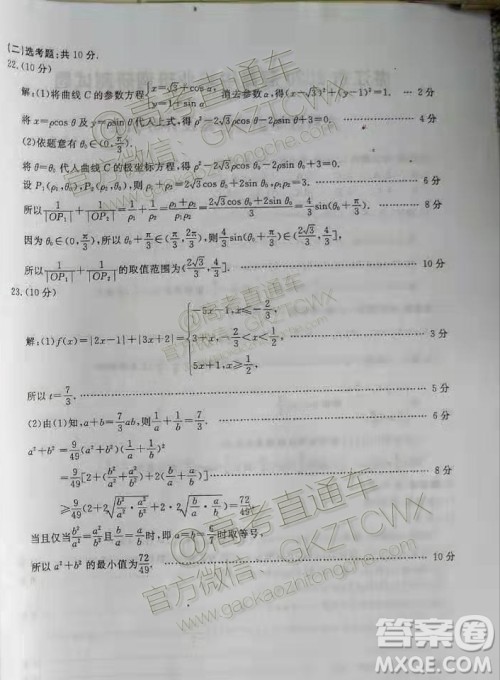 (二)选考题:共10分.
22.(10分)
解:(1)将曲线C的参数方程{x=√3+cos α, y=1+sin α 消去参数α,得(x-√3)²+(y-1)²=1.
将x=ρcos θ及y=ρsin θ代入上式,得ρ²-2√3ρcos θ-2ρsin θ+3=0. ……4分
(2)依题意有θ₀∈(0,π/3).
将θ=θ₀代入曲线C的极坐标方程,得ρ²-2√3ρcos θ₀-2ρsin θ₀+3=0.
设P₁(ρ₁,θ₀),P₂(ρ₂,θ₀),则ρ₁+ρ₂=2√3cos θ₀+2sin θ₀,ρ₁ρ₂=3. ……6分
所以1/|OP₁|+1/|OP₂|=1/ρ₁+1/ρ₂=(ρ₁+ρ₂)/(ρ₁ρ₂)=(2√3cos θ₀+2sin θ₀)/3=4/3 sin(θ₀+π/3) ……8分
因为θ₀∈(0,π/3),所以(θ₀+π/3)∈(π/3,2π/3),则4/3 sin(θ₀+π/3)∈(2√3/3,4/3],
所以1/|OP₁|+1/|OP₂|的取值范围为(2√3/3,4/3]. ……10分
23.(10分)
解:(1)f(x)=|2x-1|+|3x+2|={-5x-1,x≤-2/3, 3+x,-2/3<x<1/2, 5x+1,x≥1/2, ……3分
所以t=7/3. ……5分
(2)由(1)知,a+b=7/3ab,则1/a+1/b=7/3. ……6分
a²+b²=9/49(a²+b²)(1/a+1/b)²
=9/49[2+(b²/a²+a²/b²)+(2b/a+2a/b)] ……8分
≥9/49(2+2√(b²/a²·a²/b²)+2·2√(b/a·a/b))=72/49,
当且仅当b²/a²=a²/b²且b/a=a/b时,即a=b时取等号,
所以a²+b²的最小值为72/49. ……10分
@高考直通车
官方微信:GKZTCWX
www.gaokaozhitongche.com
@高考直通车
官方微信:GKZTCWX
www.gaokaozhitongche.com
答案圈
MXQE.COM